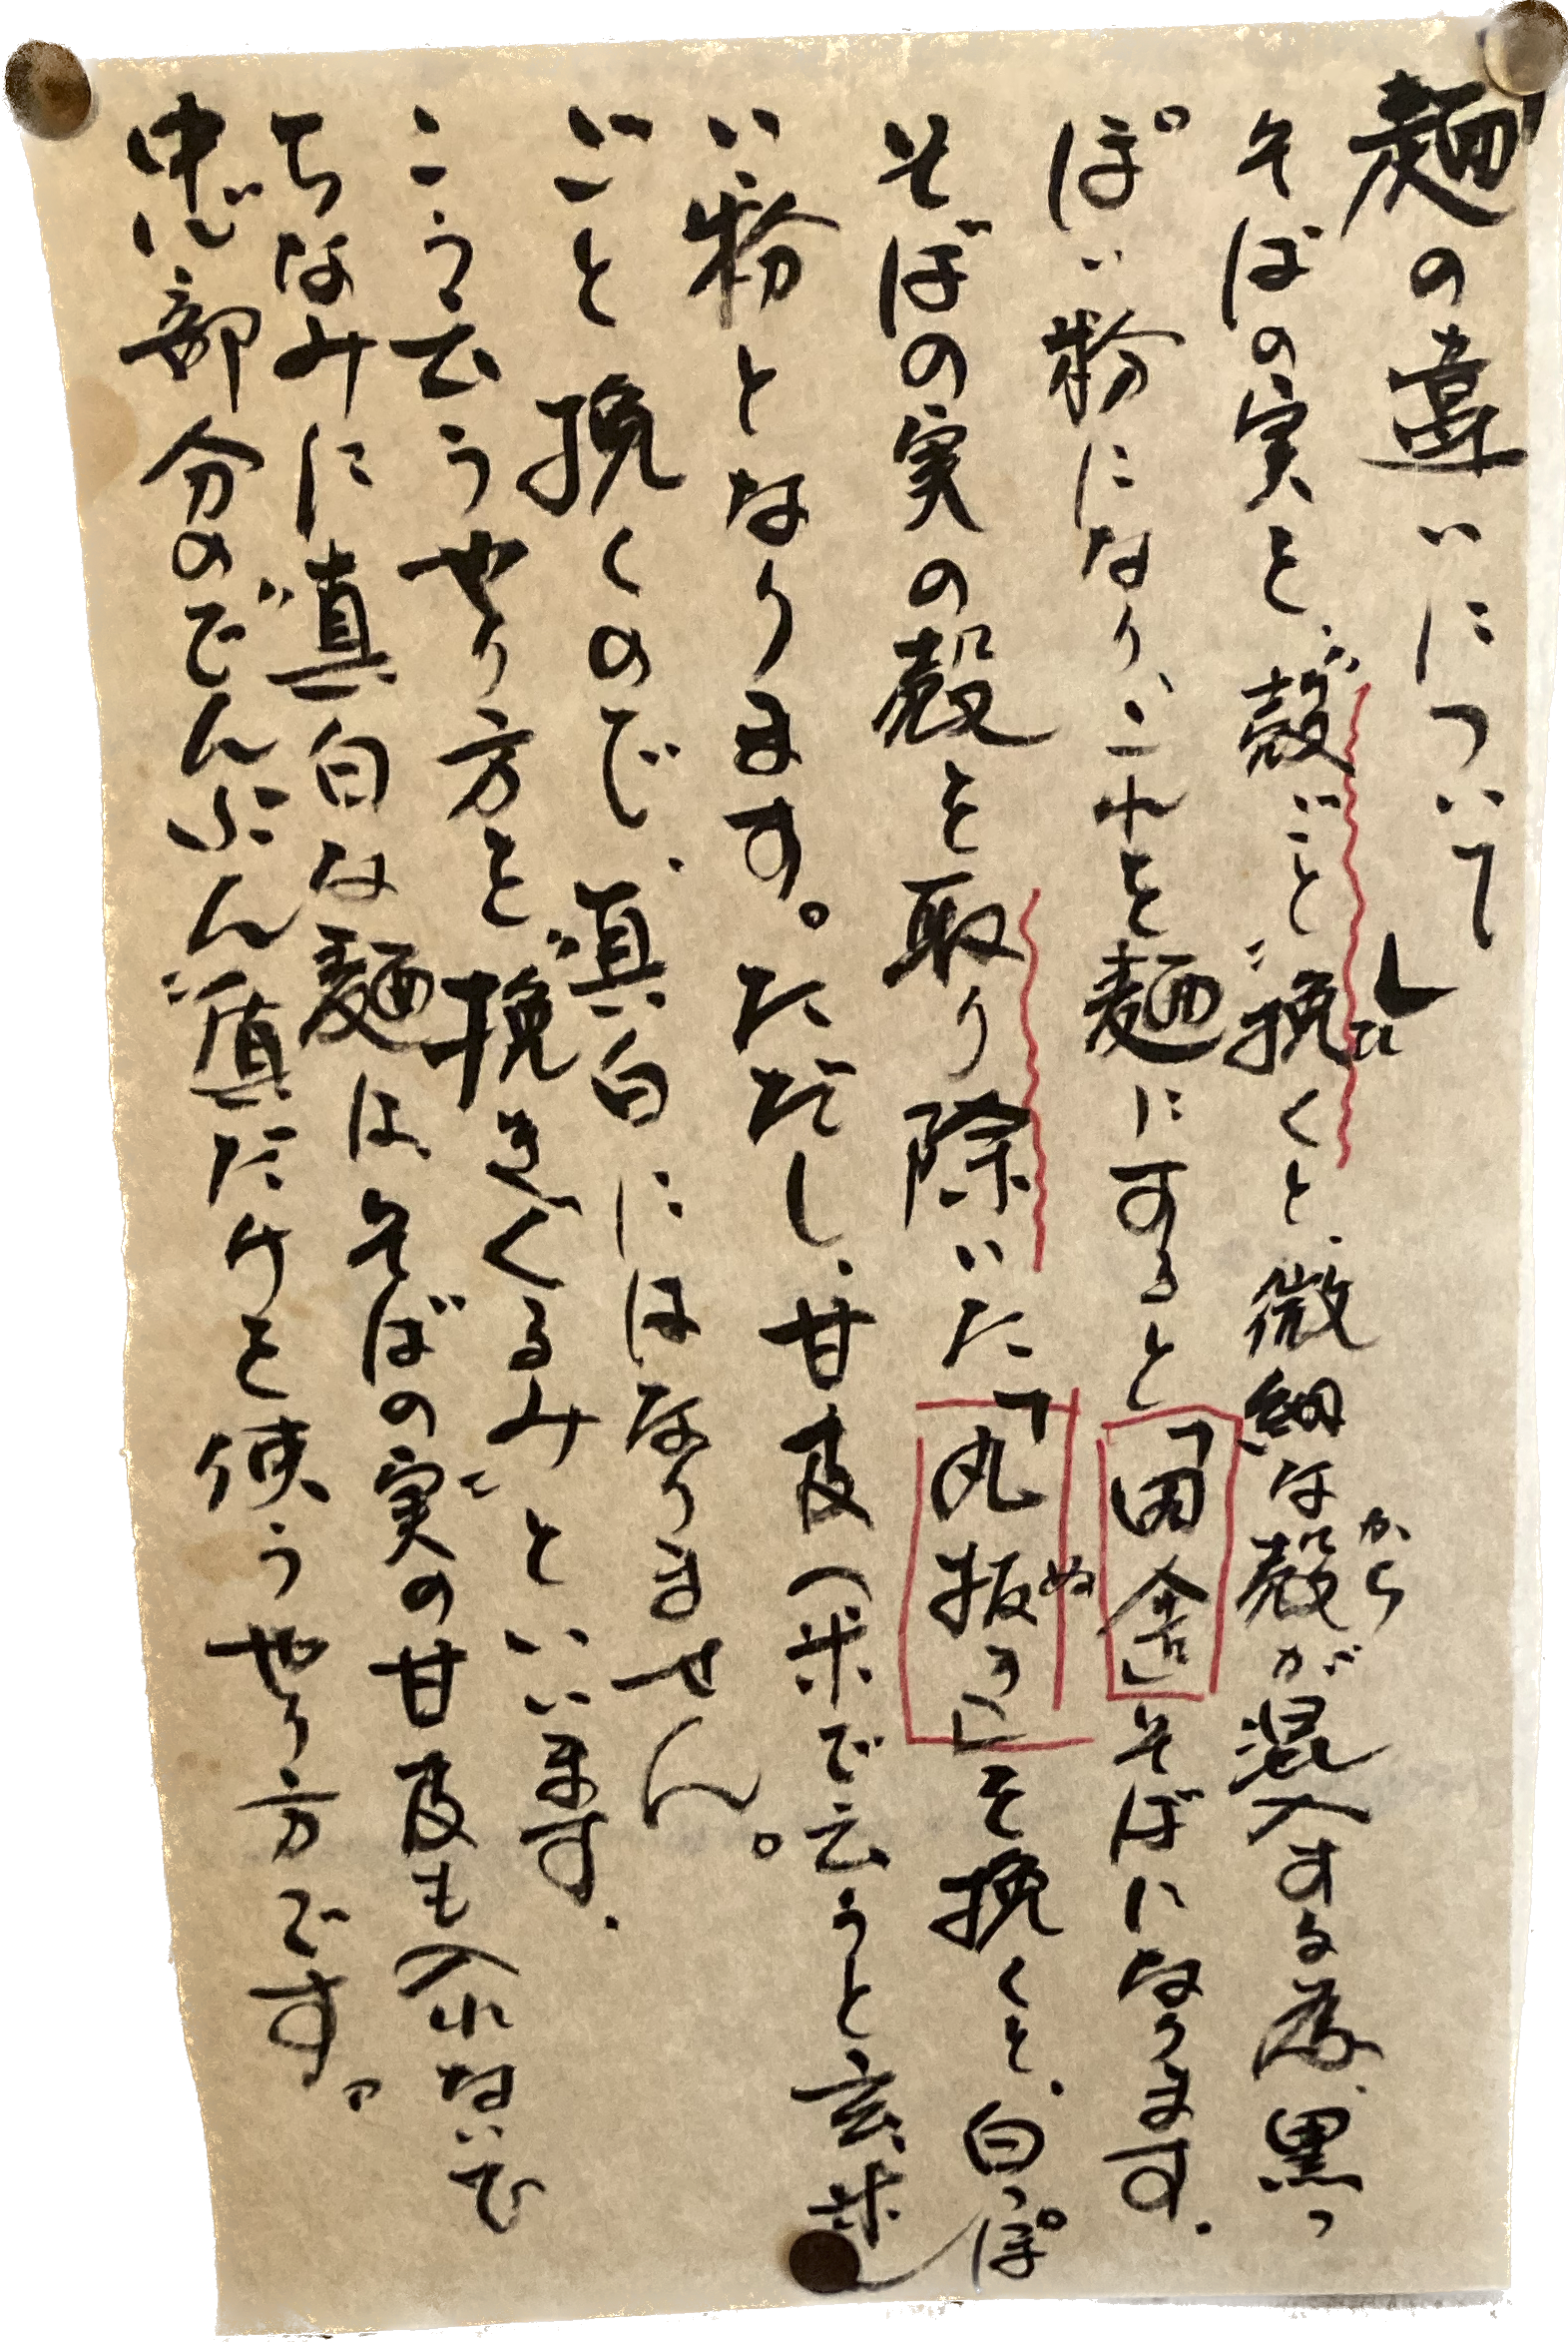 「麺の違いについて」
そばの実を、殻ごと挽くと、微細な殻が混入する為、黒っ
ぽい粉になり、これを麺にすると「田舎」そばになります。
そばの実の殻を取り除いた「丸抜き」を挽くと、白っぽ
い粉となります。ただし、甘皮(米で云うと玄米)
ごと挽くので、真白にはなりません。
こう云うやり方を"挽きぐるみ"といいます。
ちなみに"真白な麺"は、そばの実の甘皮も入れないで
中心部分のでんぷん質だけを使うやり方です。